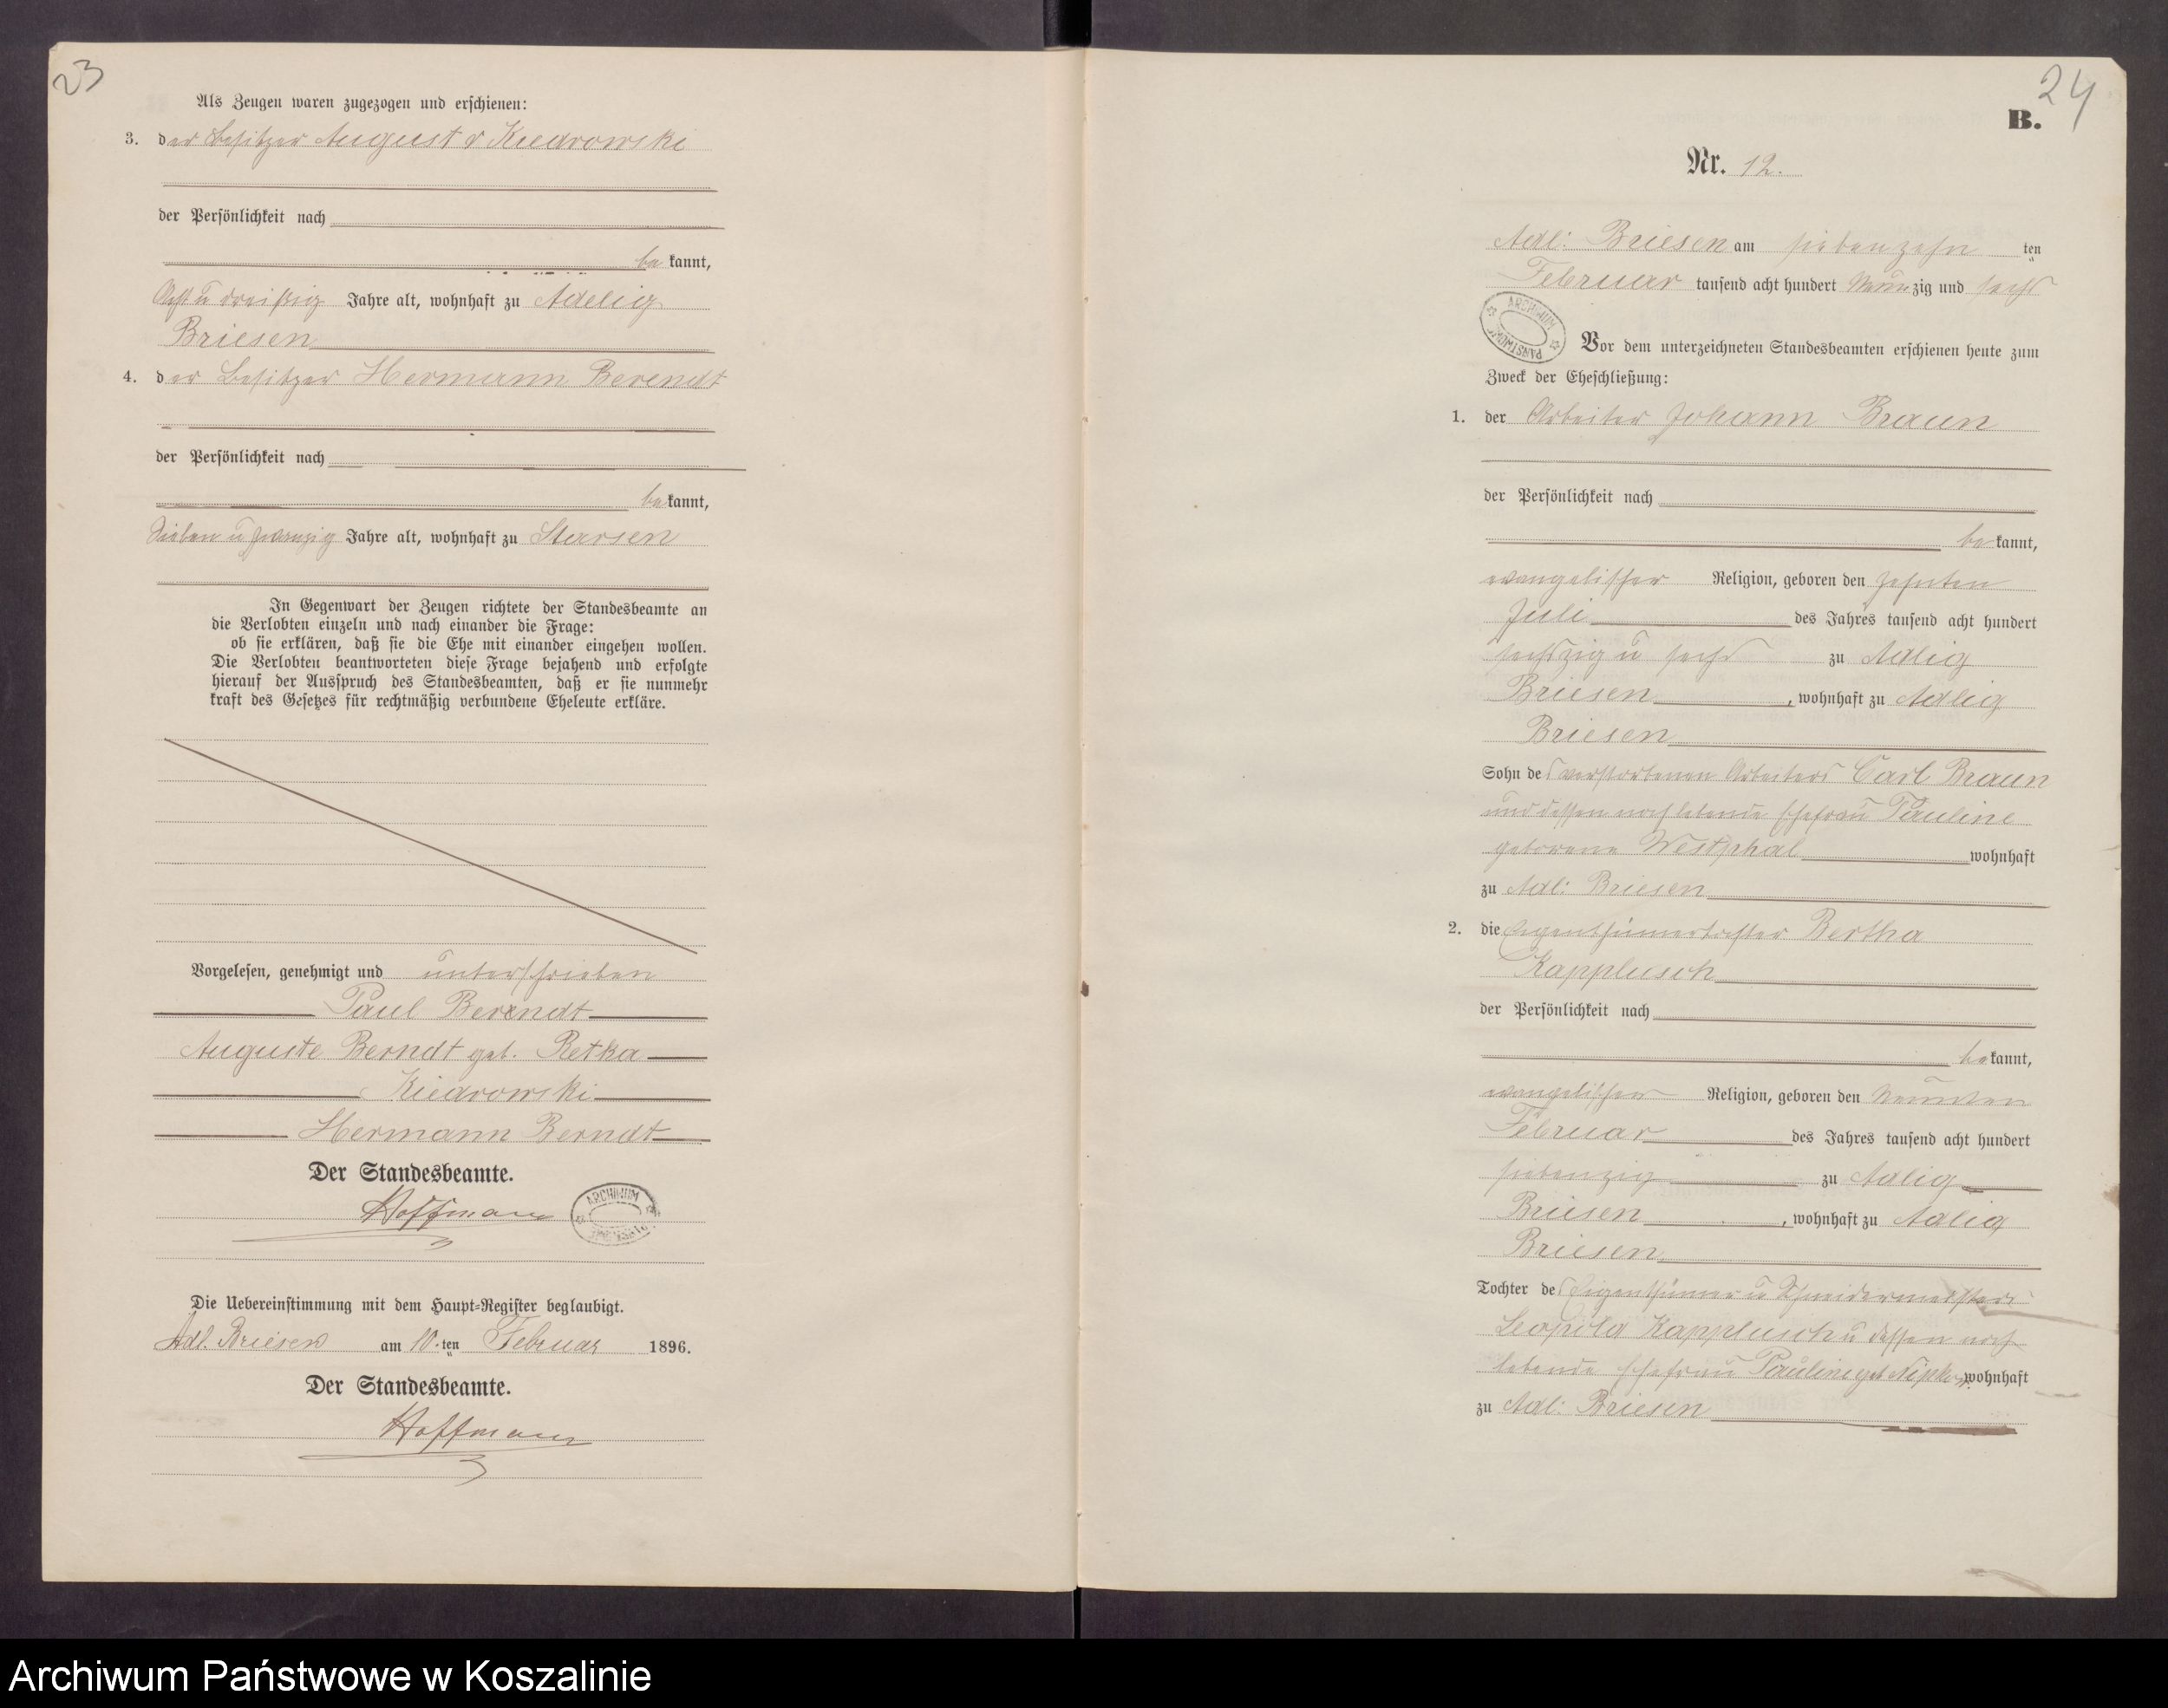 23
Als Zeugen waren zugezogen und erschienen:
3. der Besitzer August v Kiedrowski
der Persönlichkeit nach
be kannt,
Acht u dreißig Jahre alt, wohnhaft zu Adelig
Briesen
4. der Besitzer Hermann Berendt
der Persönlichkeit nach
be kannt,
Sieben u zwanzig Jahre alt, wohnhaft zu Starsen
In Gegenwart der Zeugen richtete der Standesbeamte an
die Verlobten einzeln und nach einander die Frage:
ob sie erklären, daß sie die Ehe mit einander eingehen wollen.
Die Verlobten beantworteten diese Frage bejahend und erfolgte
hierauf der Ausspruch des Standesbeamten, daß er sie nunmehr
kraft des Gesetzes für rechtmäßig verbundene Eheleute erkläre.
Vorgelesen, genehmigt und unterschrieben
Paul Berendt
Auguste Berndt geb. Retka
Kiedrowski
Hermann Berndt
Der Standesbeamte.
Hoffmann
ARCHIWUM
Die Uebereinstimmung mit dem Haupt-Register beglaubigt.
Adl. Briesen am 10. ten Februar 1896.
Der Standesbeamte.
Hoffmann
24
B.
Nr. 12.
Adl: Briesen am siebenzehn ten
Februar tausend acht hundert Neunzig und sechs
ARCHIWUM PAŃSTWOWE
Vor dem unterzeichneten Standesbeamten erschienen heute zum
Zweck der Eheschließung:
1. der Arbeiter Johann Braun
der Persönlichkeit nach
be kannt,
evangelischer Religion, geboren den zehnten
Juli des Jahres tausend acht hundert
sechszig u sechs zu Adlig
Briesen, wohnhaft zu Adlig
Briesen
Sohn des verstorbenen Arbeiters Carl Braun
und dessen noch lebende Ehefrau Pauline
geborene Westphal wohnhaft
zu Adl: Briesen
2. die Eigenthümertochter Bertha
Kapplusch
der Persönlichkeit nach
be kannt,
evangelischer Religion, geboren den Neunten
Februar des Jahres tausend acht hundert
siebenzig zu Adlig
Briesen, wohnhaft zu Adlig
Briesen
Tochter des Eigenthümer u Schneidermeisters
Leopold Kapplusch u dessen noch
lebende Ehefrau Pauline geb Nipkow wohnhaft
zu Adl: Briesen
Archiwum Państwowe w Koszalinie